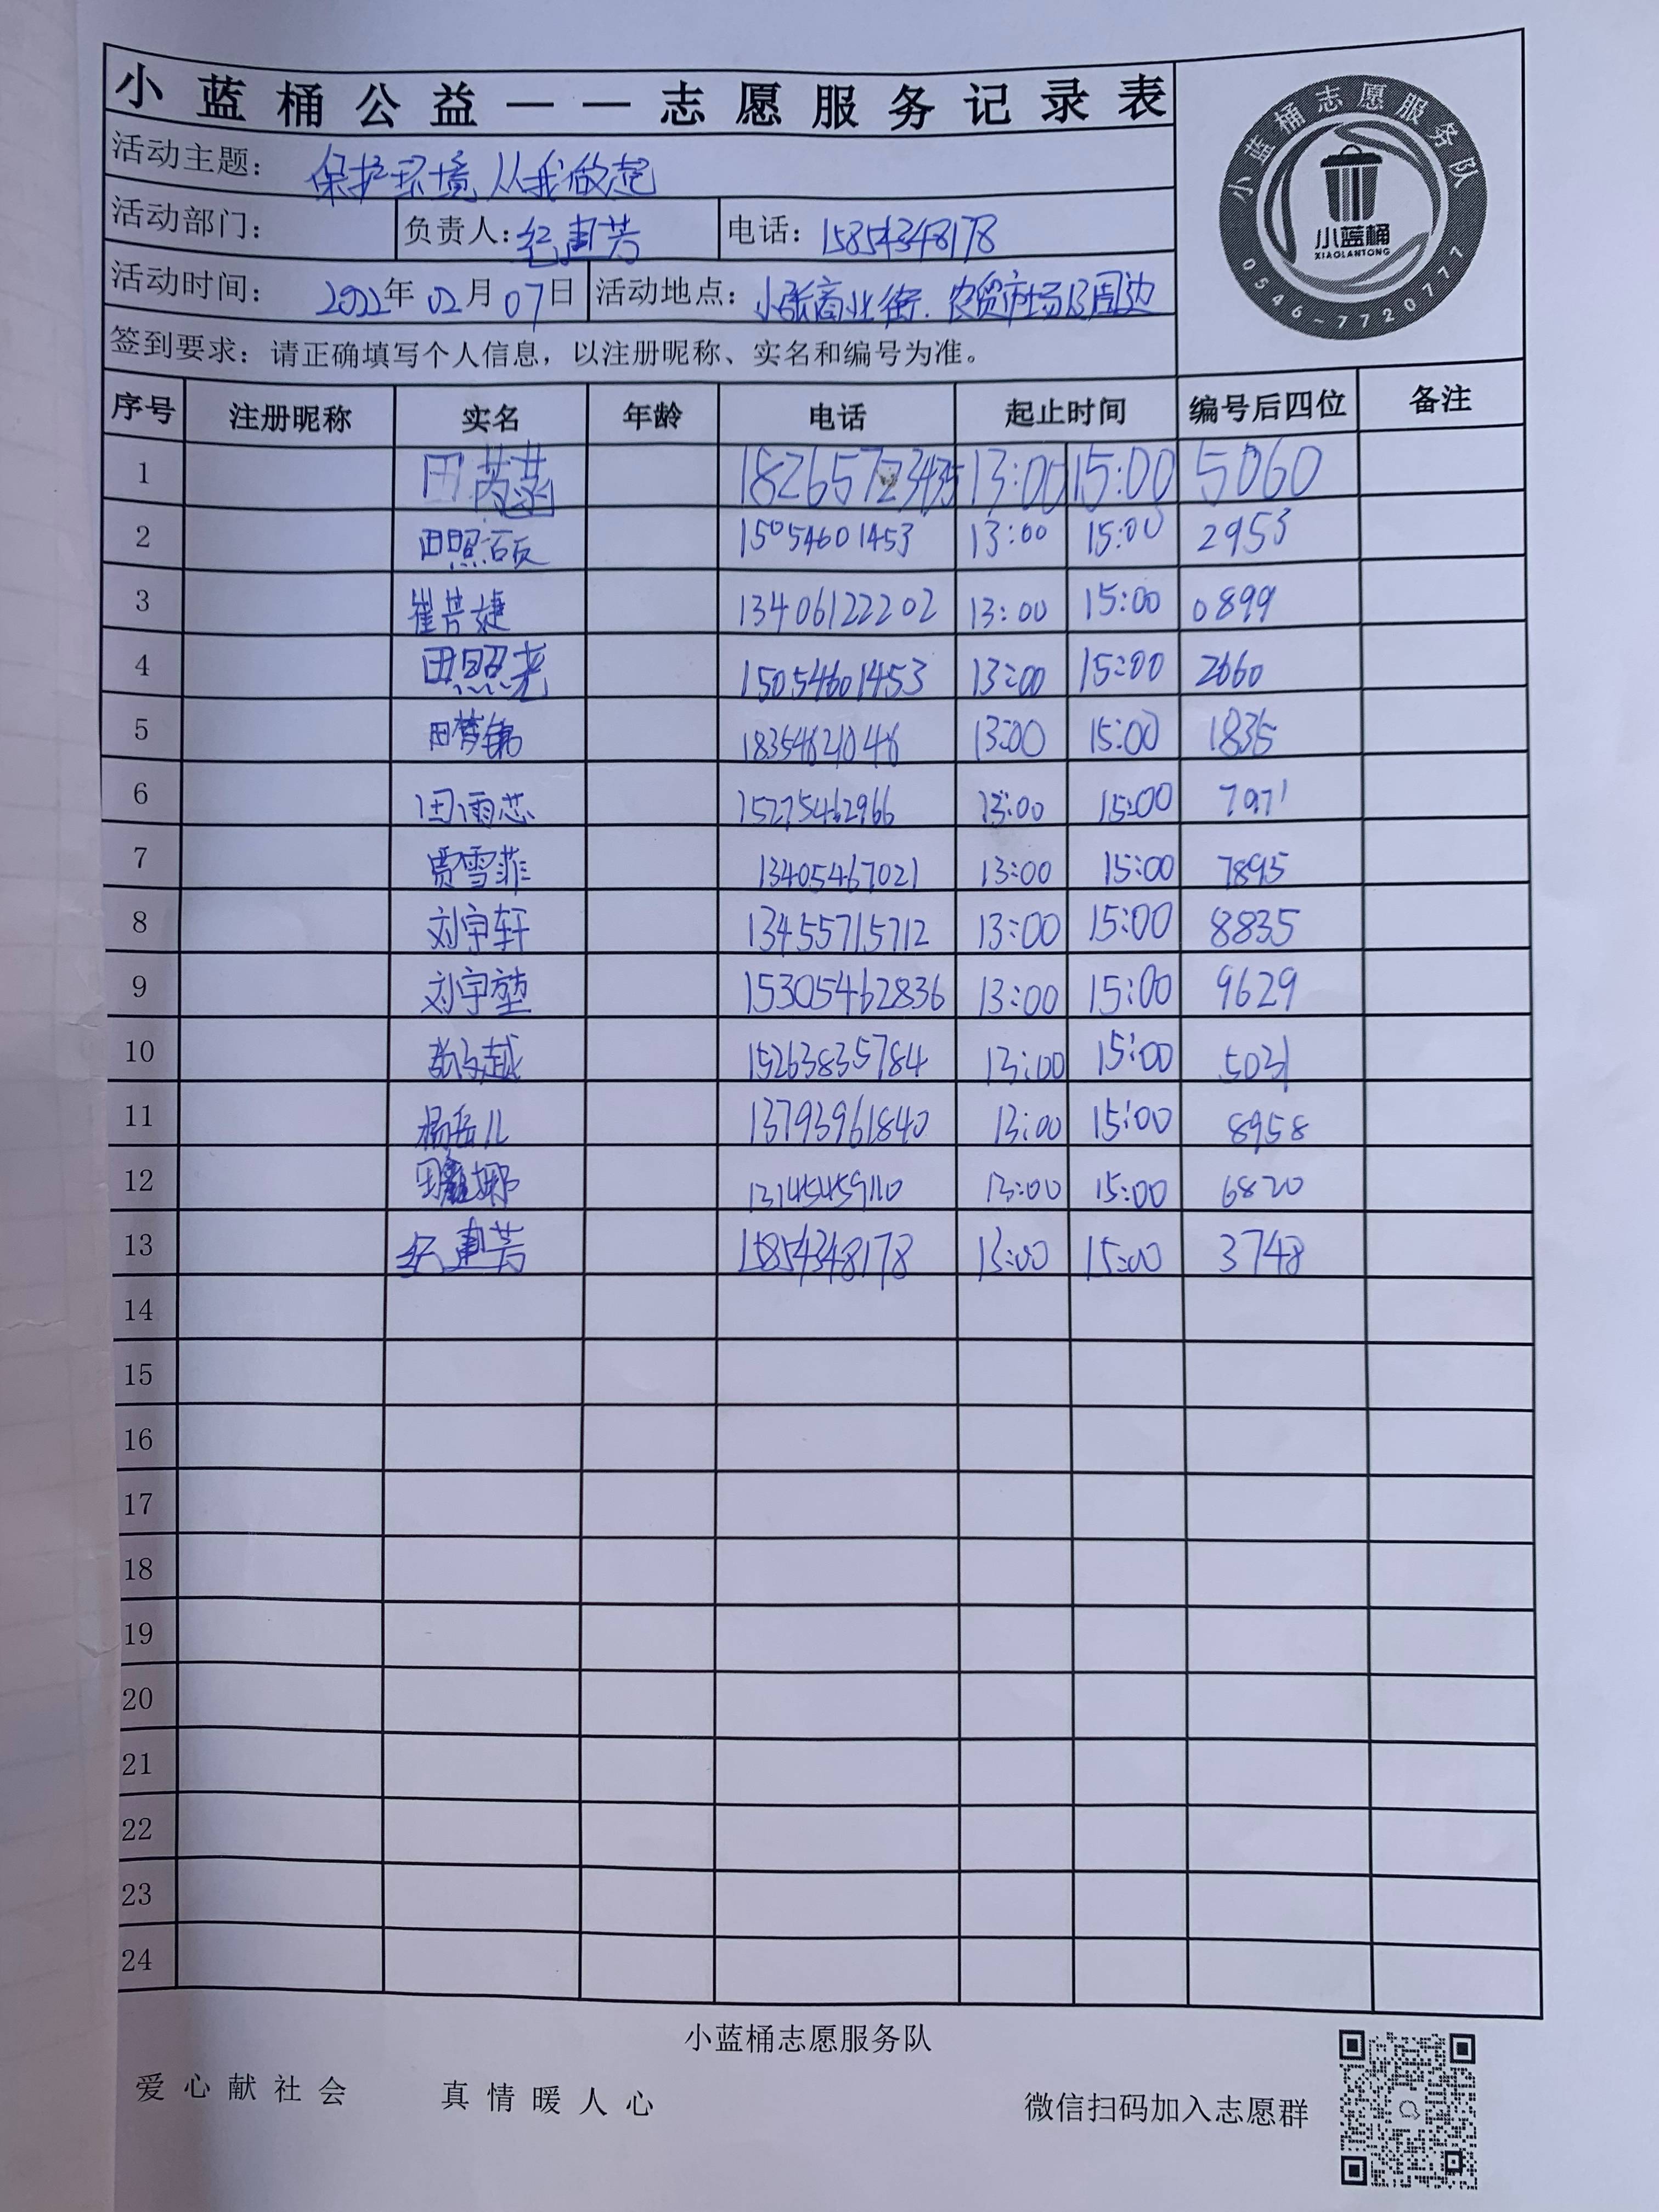 小蓝桶公益——志愿服务记录表
小蓝桶志愿服务队
小蓝桶
XIAOLANTONG
0546-7720777
活动主题： 保护环境 从我做起
活动部门： 负责人：纪建芳 电话：15854348178
活动时间： 2022年02月07日 活动地点：小张商业街.农贸市场及周边
签到要求：请正确填写个人信息，以注册昵称、实名和编号为准。
序号 注册昵称 实名 年龄 电话 起止时间 编号后四位 备注
1 田芮菡 18265723435 13:00 15:00 5060
2 田照硕 15054601453 13:00 15:00 2953
3 崔芳婕 13406122202 13:00 15:00 0899
4 田照尧 15054601453 13:00 15:00 2660
5 田梦锦 18354621046 13:00 15:00 1835
6 田雨芯 15275462966 13:00 15:00 7071
7 贾雪菲 13405467021 13:00 15:00 7895
8 刘宇轩 13455715712 13:00 15:00 8835
9 刘宇堃 15305462836 13:00 15:00 9629
10 越 15263835784 13:00 15:00 5031
11 杨岳儿 13793961840 13:00 15:00 8958
12 田娜 13145459110 13:00 15:00 6820
13 纪建芳 15854348178 13:00 15:00 3748
14
15
16
17
18
19
20
21
22
23
24
小蓝桶志愿服务队
爱心献社会 真情暖人心 微信扫码加入志愿群